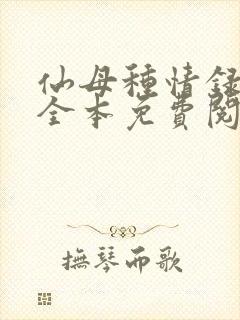 仙母種情録
全本免費閱
撫琴而歌